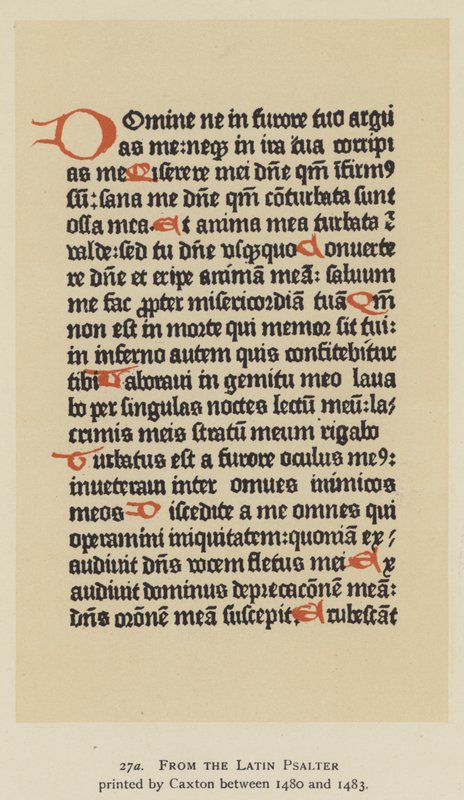 Domine ne in furore tuo argu
as me:neqꝫ in ira tua corripi
as me Miserere mei dñe qm̄ ĩfirmꝯ
sũ:sana me dñe qm̄ cõturbata sunt
ossa mea. Et anima mea turbata ⁊̃
valde:sed tu dñe vsqꝫquo Conuerte
re dñe et eripe animã meã: saluum
me fac ꝓpter misericordiã tuã Qm̄
non est in morte qui memor sit tui:
in inferno autem quis confitebitur
tibi Laboraui in gemitu meo laua
bo per singulas noctes lectũ meũ:la⸗
crimis meis stratũ meum rigabo
Turbatus est a furore oculus meꝯ:
inueteraui inter omnes inimicos
meos Discedite a me omnes qui
operamini iniquitatem:quoniã ex⸗
audiuit dñs vocem fletus mei Ex
audiuit dominus deprecacõnẽ meã:
dñs orõnẽ meã suscepit. Erubescãt
27a. FROM THE LATIN PSALTER
printed by Caxton between 1480 and 1483.